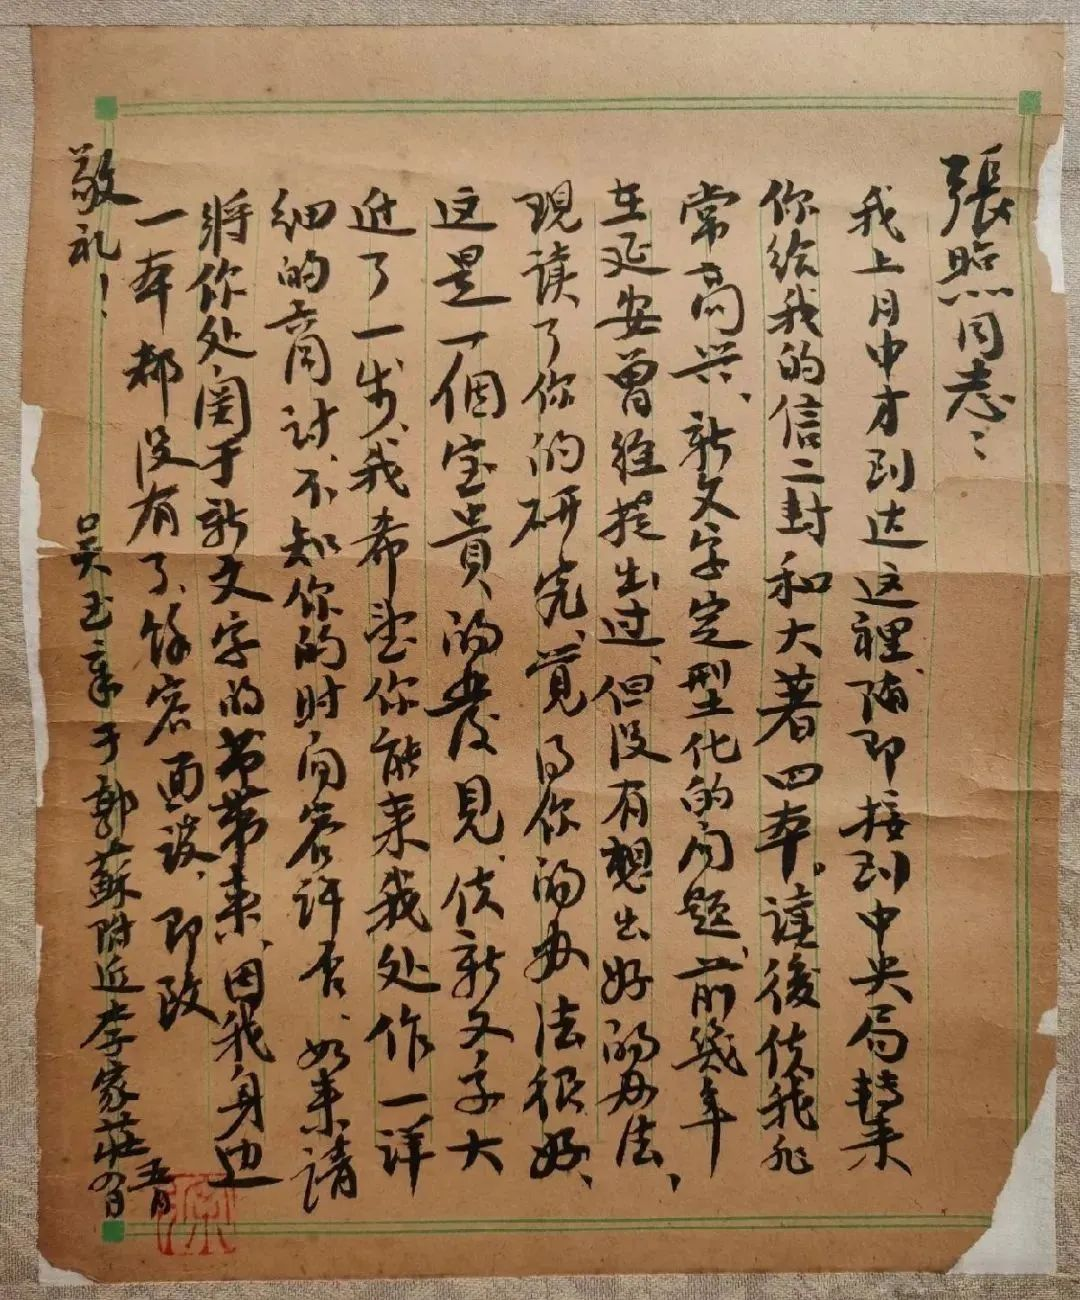 張照同志：
我上月中才到达这裡，随即接到中央局轉来
你給我的信二封和大著四本。讀後使我非
常高兴、新文字定型化的问題、前幾年
在延安曾経提出过，但没有想出好的办法，
現读了你的研究、覚得你的办法很好、
这是一個宝貴的發見、使新文字大
进了一步、我希望你能来我处作一詳
細的商讨、不知你的时间容许否、如来请
將你处関于新文字的书带来、因我身边
一本都没有了、餘容面談、即致
敬礼！
吴玉章于郭蘇附近李家莊
五月